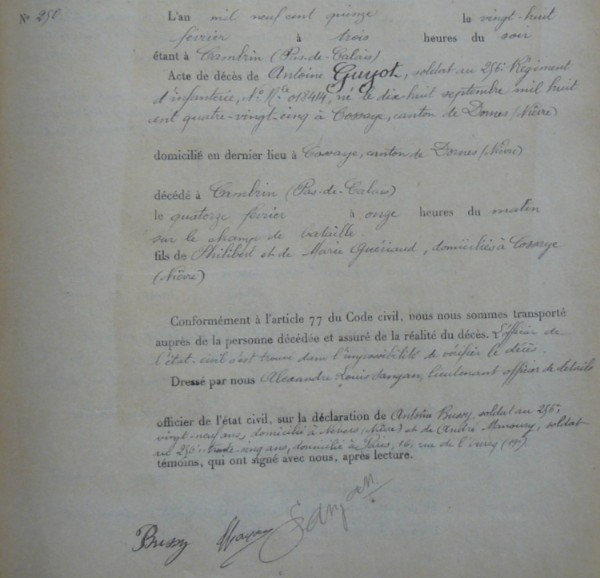 N° 250
L'an mil neuf cent quinze le vingt-huit
février à trois heures du soir
étant à Cambrin (Pas-de-Calais)
Acte de décès de Antoine Guyot, soldat au 256e Régiment
d'infanterie, N° Mle 018414, né le dix-huit septembre mil huit
cent quatre-vingt-cinq à Cossaye, canton de Dornes (Nièvre)
domicilié en dernier lieu à Cossaye, canton de Dornes (Nièvre)
décédé à Cambrin (Pas-de-Calais)
le quatorze février à onze heures du matin
sur le champ de bataille.
fils de Philibert et de Marie Guériaud, domiciliés à Cossaye
(Nièvre)
Conformément à l'article 77 du Code civil, nous nous sommes transporté
auprès de la personne décédée et assuré de la réalité du décès. L'officier de
l'état-civil s'est trouvé dans l'impossibilité de vérifier le décès.
Dressé par nous Alexandre Louis Sanjan, lieutenant officier de détails
officier de l'état civil, sur la déclaration de Antoine Bussy, soldat au 256e,
vingt-neuf ans, domicilié à Nevers (Nièvre) et de André, soldat
au 256e trente-cinq ans, domicilié à Paris, 16, rue de l'Ourcq (19e)
témoins, qui ont signé avec nous, après lecture.
Bussy Sanjan